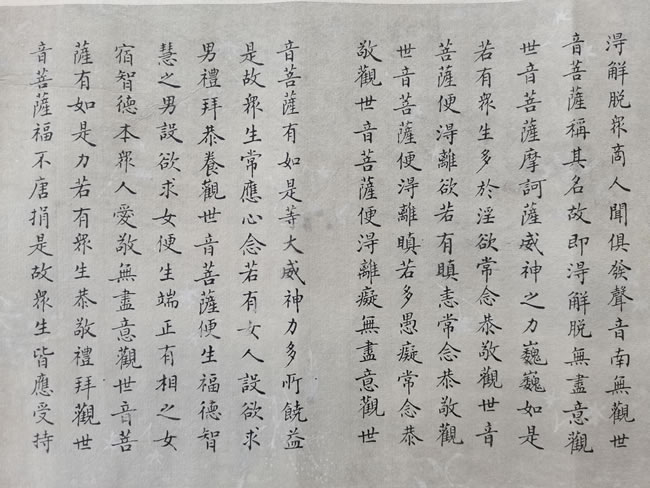 淂解脫眾商人聞俱發聲音南無觀世
音菩薩稱其名故即淂解脫無盡意觀
世音菩薩摩訶薩威神之力巍巍如是
若有眾生多於淫欲常念恭敬觀世音
菩薩便淂離欲若有瞋恚常念恭敬觀
世音菩薩便淂離瞋若多愚癡常念恭
敬觀世音菩薩便淂離癡無盡意觀世
音菩薩有如是等大威神力多所饒益
是故眾生常應心念若有女人設欲求
男禮拜恭養觀世音菩薩便生福德智
慧之男設欲求女便生端正有相之女
宿智德本眾人愛敬無盡意觀世音菩
薩有如是力若有眾生恭敬禮拜觀世
音菩薩福不唐捐是故眾生皆應受持